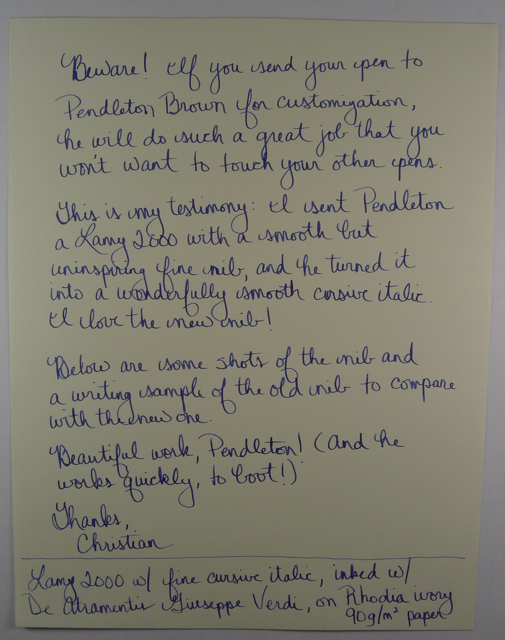 Beware! If you send your pen to
Pendleton Brown for customization,
he will do such a great job that you
won't want to touch your other pens.
This is my testimony: I sent Pendleton
a Lamy 2000 with a smooth but
uninspiring fine nib, and he turned it
into a wonderfully smooth cursive italic.
I love the new nib!
Below are some shots of the nib and
a writing sample of the old nib to compare
with the new one.
Beautiful work, Pendleton! (And he
works quickly, to boot!)
Thanks,
Christian
Lamy 2000 w/ fine cursive italic, inked w/
De Atramentis Giuseppe Verdi, on Rhodia ivory
90g/m² paper